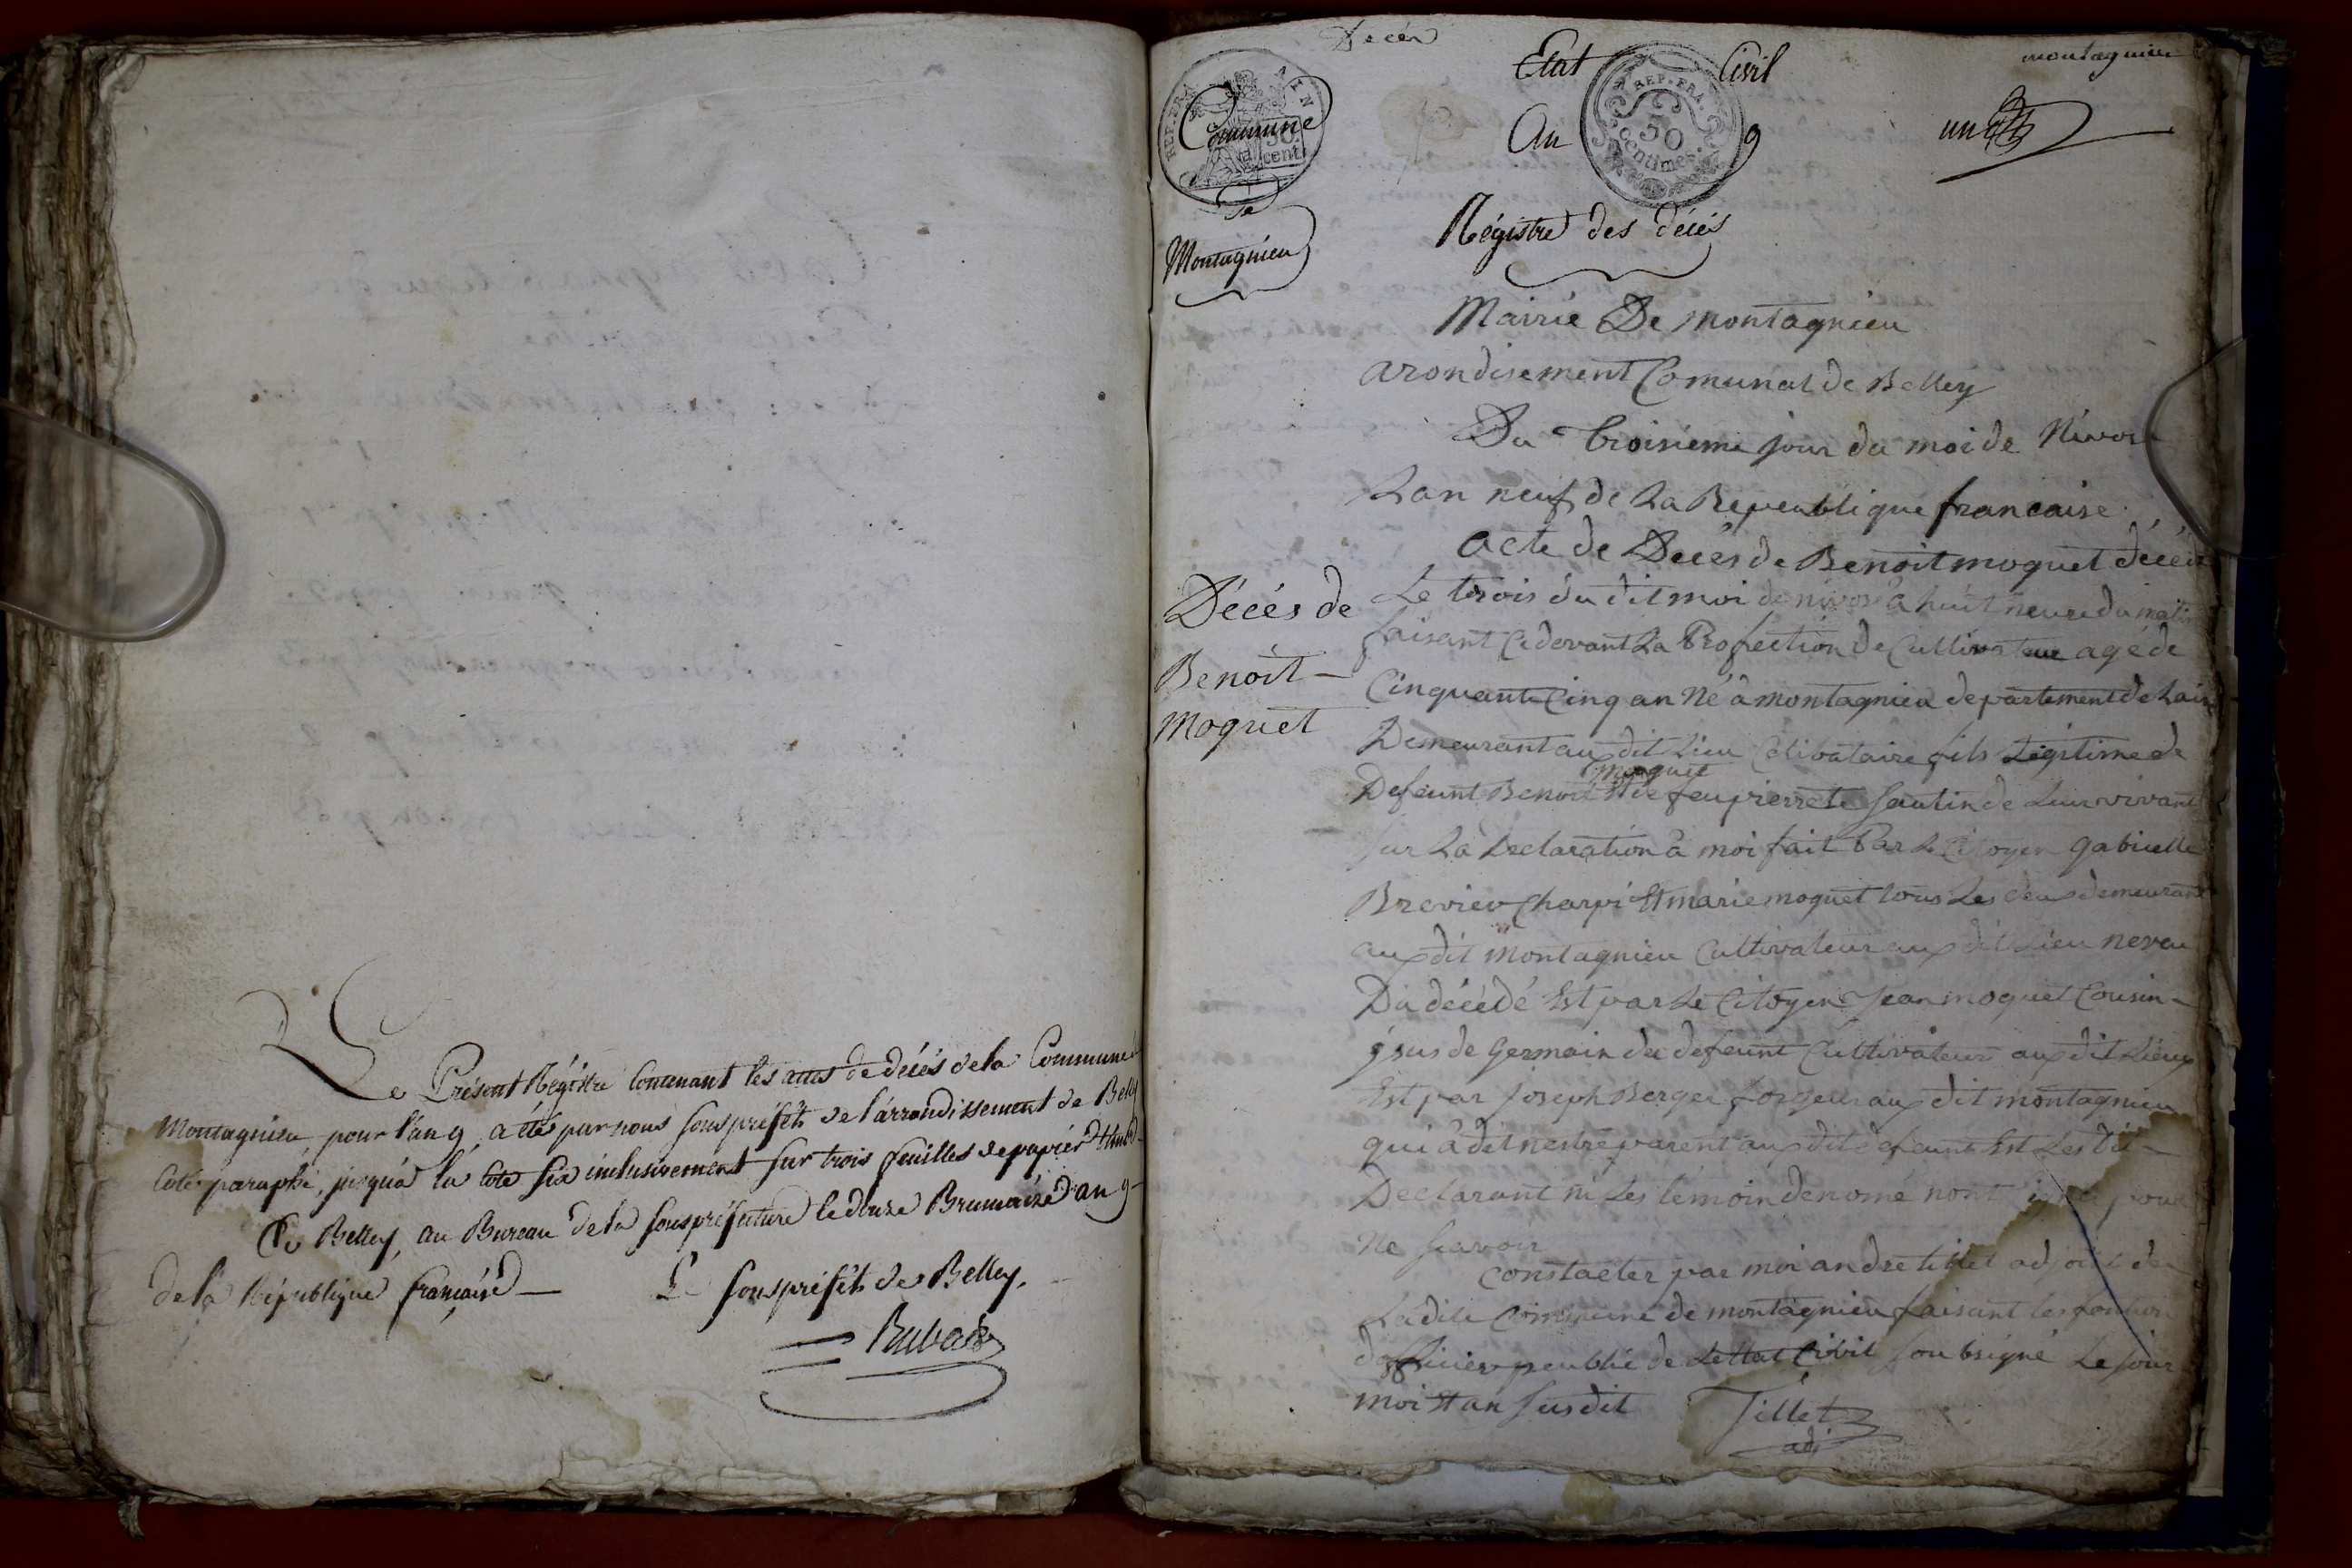 Le Présent Régistre Contenant les actes de décés de la Commune
Montagnieu pour l'an 9, a été par nous sous préfét de l'arrondissement de Belley
Coté paraphé, jusqu'à la cote six inclusivement sur trois feuilles de papier timbré
Belley, au Bureau de la souspréfecture le douze Brumaire an 9
de la République française
Le souspréfét de Belley.
Décés
Etat Civil
montagnieu
REP. FRA
50 cent.
REP. FRA.
50
centimes.
Commune
de
Montagnieu
An 9
un
Régistre des décés
Mairie De montagnieu
arondisement Comunal de Belley
Du troisieme jour du moi de Nivos
Lan neuf de La Republique francaise
acte de Decés de Benoit moquet décéd
Décés de
Benoit
moquet
Le trois du dit moi de nivose à huit heure du mati
faisant Cidevant La Profection de Cultivateur agé de
Cinquante Cinq an Né à montagnieu departement de Lain
Demeurant au dit Lieu Célibataire fils Légitime de
moquet
Defeunt Benoit Et de feu pierrete Sautin de Leur vivant
sur La Declaration à moi fait Par Le Citoyen gabrielle
Brevier Charpi Et marie moquet tous Les deux demeurant
aux dit montagnieu Cultivateur aux dit Lieu neveu
Du décédé Est par Le Citoyen Jean moquet Cousin
jsus de Germain du defeunt Cultivateur aux dit Lieux
Est par Joseph Berger aux dit montagnieu
qui à dit nestre parent aux dit defeunt Est Les dit
Declarant ni Les témoin denomé nont pour
Ne scavoir
constaeter par moi andre tillet adjoint de
Ladite Commune de montagnieu faisant les
dofficier peublic de Lettat Civil soubsigné Le jour
moi Et an susdit
Tillet
adj